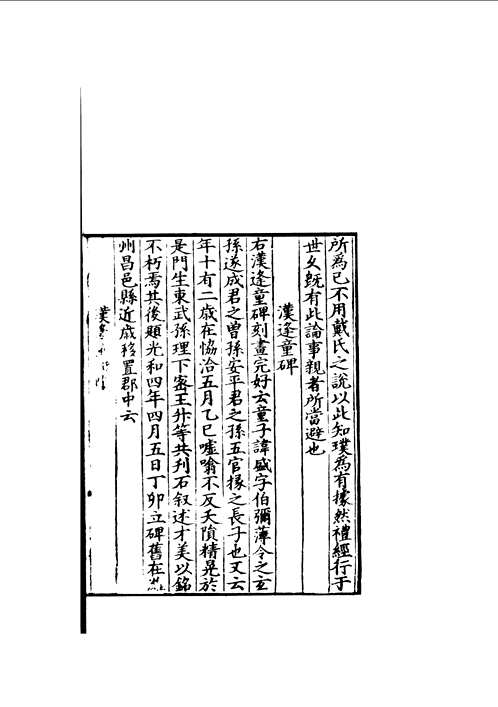 所為已不用戴氏之說以此知璞為有據然禮經行于
世久既有此論事親者所當避也
漢逢童碑
右漢逢童碑刻畫完好云童子諱盛字伯彌薄令之玄
孫遂成君之曾孫安平君之孫五官掾之長子也又云
年十有二歲在協洽五月乙巳噓噏不反夭隕精晃於
是門生東武孫理下密王升等共刊石叙述才美以銘
不朽焉其後題光和四年四月五日丁卯立碑舊在
州昌邑縣近歲移置郡中云